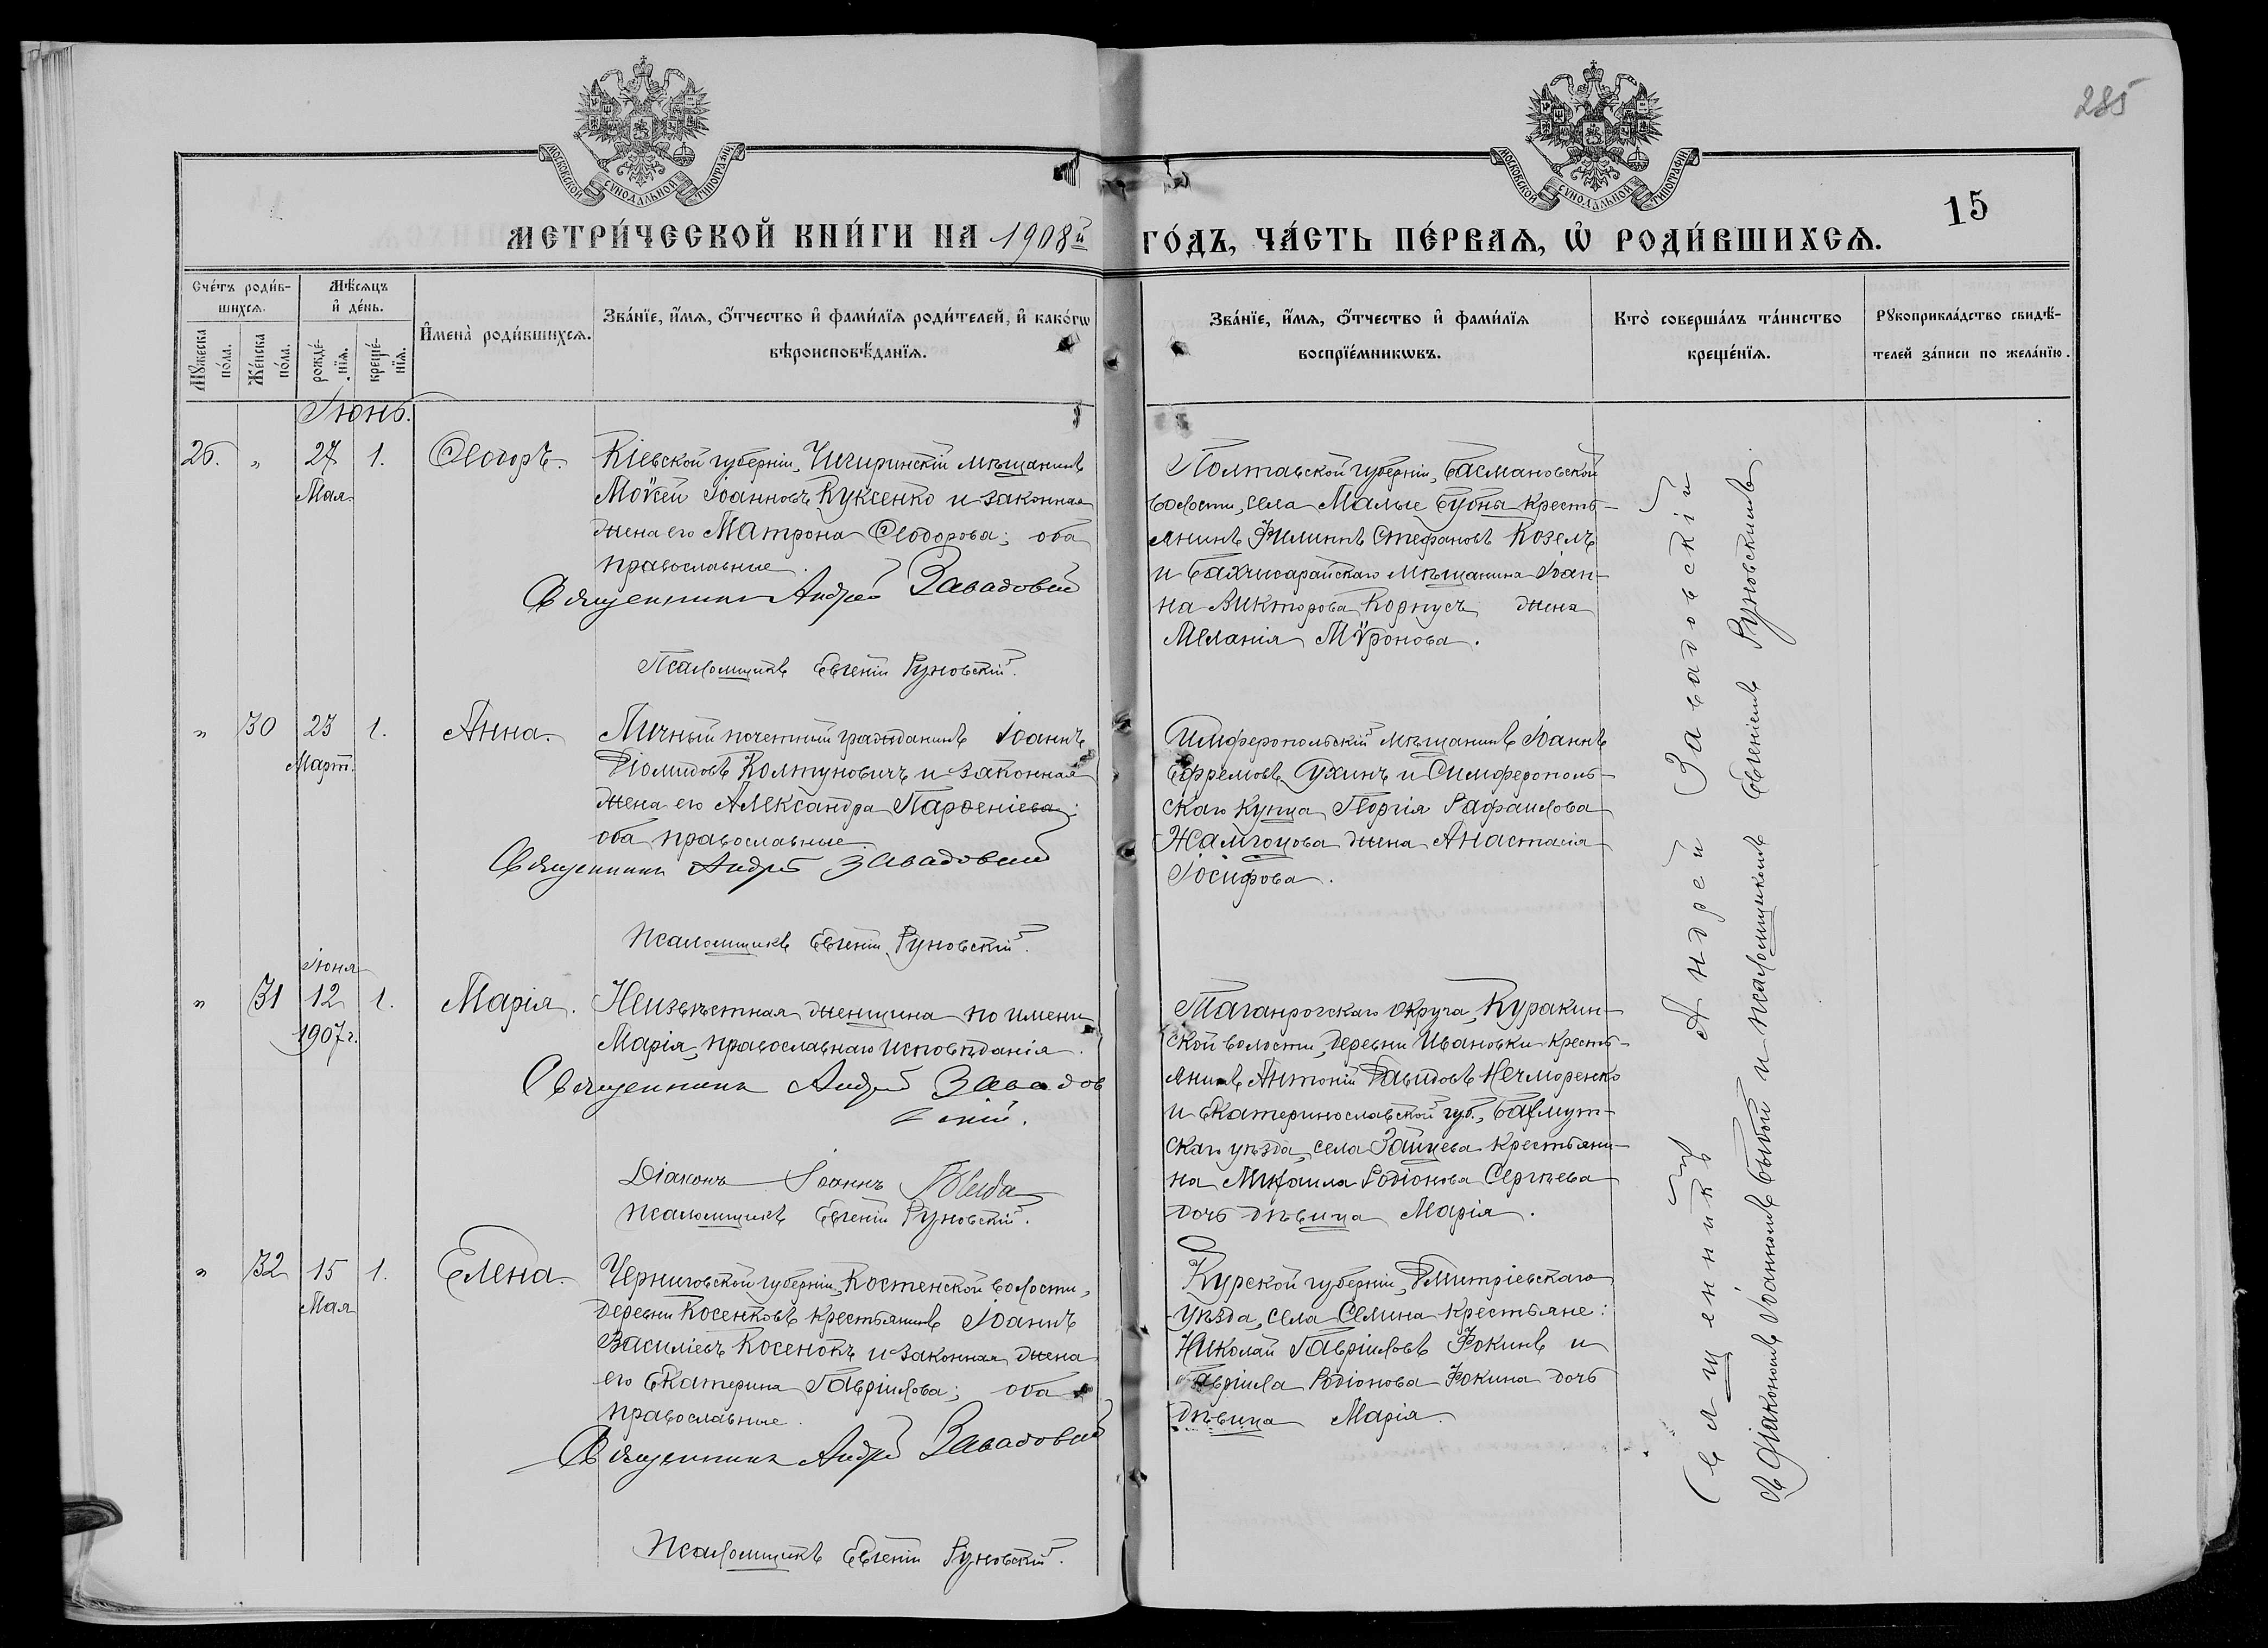 285
15
МОСКОВСКОЙ СѴНОДАЛЬНОЙ ТИПОГРАФІИ.
МОСКОВСКОЙ СѴНОДАЛЬНОЙ ТИПОГРАФІИ.
МЕТРИ́ЧЕСКОЙ КНИ́ГИ НА 1908й ГО́ДЪ, ЧА́СТЬ ПЕ́РВАѦ, Ѽ РОДИ́ВШИХСѦ.
Сче́тъ роди́в-
шихсѧ.
Мꙋ́жеска
по́ла.
Же́нска
по́ла.
Мѣ́сѧцъ
и҆ де́нь.
рожде́-
нїѧ.
креще́-
нїѧ.
И҆мена̀ роди́вшихсѧ.
Зва́нїе, и҆́мѧ, ѻ҆́тчество и҆ фами́лїѧ роди́телей, и҆ како́гѡ
вѣроисповѣ́данїѧ.
Зва́нїе, и҆́мѧ, ѻ҆́тчество и҆ фами́лїѧ
воспрїе́мникѡвъ.
Кто̀ соверша́лъ та́инство
креще́нїѧ.
Рꙋкоприкла́дство свидѣ́-
телей за́писи по жела́нїю.
Іюнь.
26. „ 27 1. Ѳеодоръ.
Мая
Кіевской губерніи, Чигиринскій мѣщанинъ
Моѵсей Іоанновъ Куксенко и законная
жена его Матрона Ѳеодорова; оба
православные.
Священникъ Андрей Завадовскій
Псаломщикъ Евгеній Руновскій.
Полтавской губерніи, Басмановской
волости, села Малые Бубны кресть-
янинъ Филиппъ Стефановъ Козелъ
и Бахчисарайскаго мѣщанина Іоан-
на Викторова Корпусъ жена
Меланія Мѵронова.
„ 30 23 1. Анна.
Март.
Личный почетный гражданинъ Іоаннъ
Діомидовъ Колтуновичъ и законная
жена его Александра Парѳеніева;
оба православные.
Священникъ Андрей Завадовскій
Псаломщикъ Евгеній Руновскій.
Симферопольскій мѣщанинъ Іоаннъ
Ефремовъ Ухинъ и Симферополь-
скаго купца Георгія Рафаилова
Жалгоцова жена Анастасія
Іосифова.
Іюня
„ 31 12 1. Марія.
1907 г.
Неизвѣстная женщина по имени
Марія, православнаго исповѣданія.
Священникъ Андрей Завадов
скій.
Діаконъ Іоаннъ
Псаломщикъ Евгеній Руновскій.
Таганрогскаго округа, Куракин-
ской волости, деревни Ивановки кресть-
янинъ Антоній Давидовъ Нечморенко
и Екатеринославской губ., Бахмут-
скаго уѣзда, села Зайцева крестьяни-
на Михаила Родіонова Сергѣева
дочь дѣвица Марія.
„ 32 15 1. Елена.
Мая
Черниговской губерніи, Костенской волости,
деревни Косенковъ крестьянинъ Іоаннъ
Василіевъ Косенокъ и законная жена
его Екатерина Гавріилова; оба
православные.
Священникъ Андрей Завадовскій
Псаломщикъ Евгеній Руновскій.
Курской губерніи, Дмитріевскаго
уѣзда, села Семина крестьяне:
Николай Гавріиловъ Фокинъ и
Гавріила Родіонова Фокина дочь
дѣвица Марія.
Священникъ Андрей Завадовскій
съ діакономъ Іоанномъ и псаломщикомъ Евгеніемъ Руновскимъ.